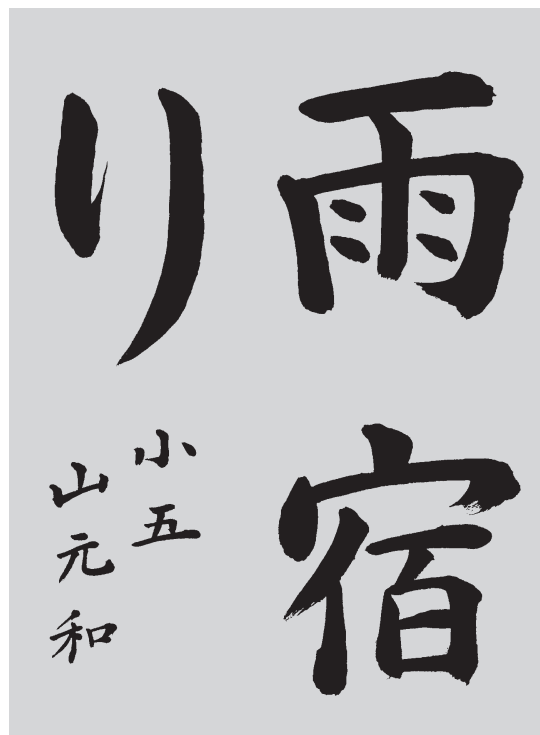 雨宿
り
小五
山元和